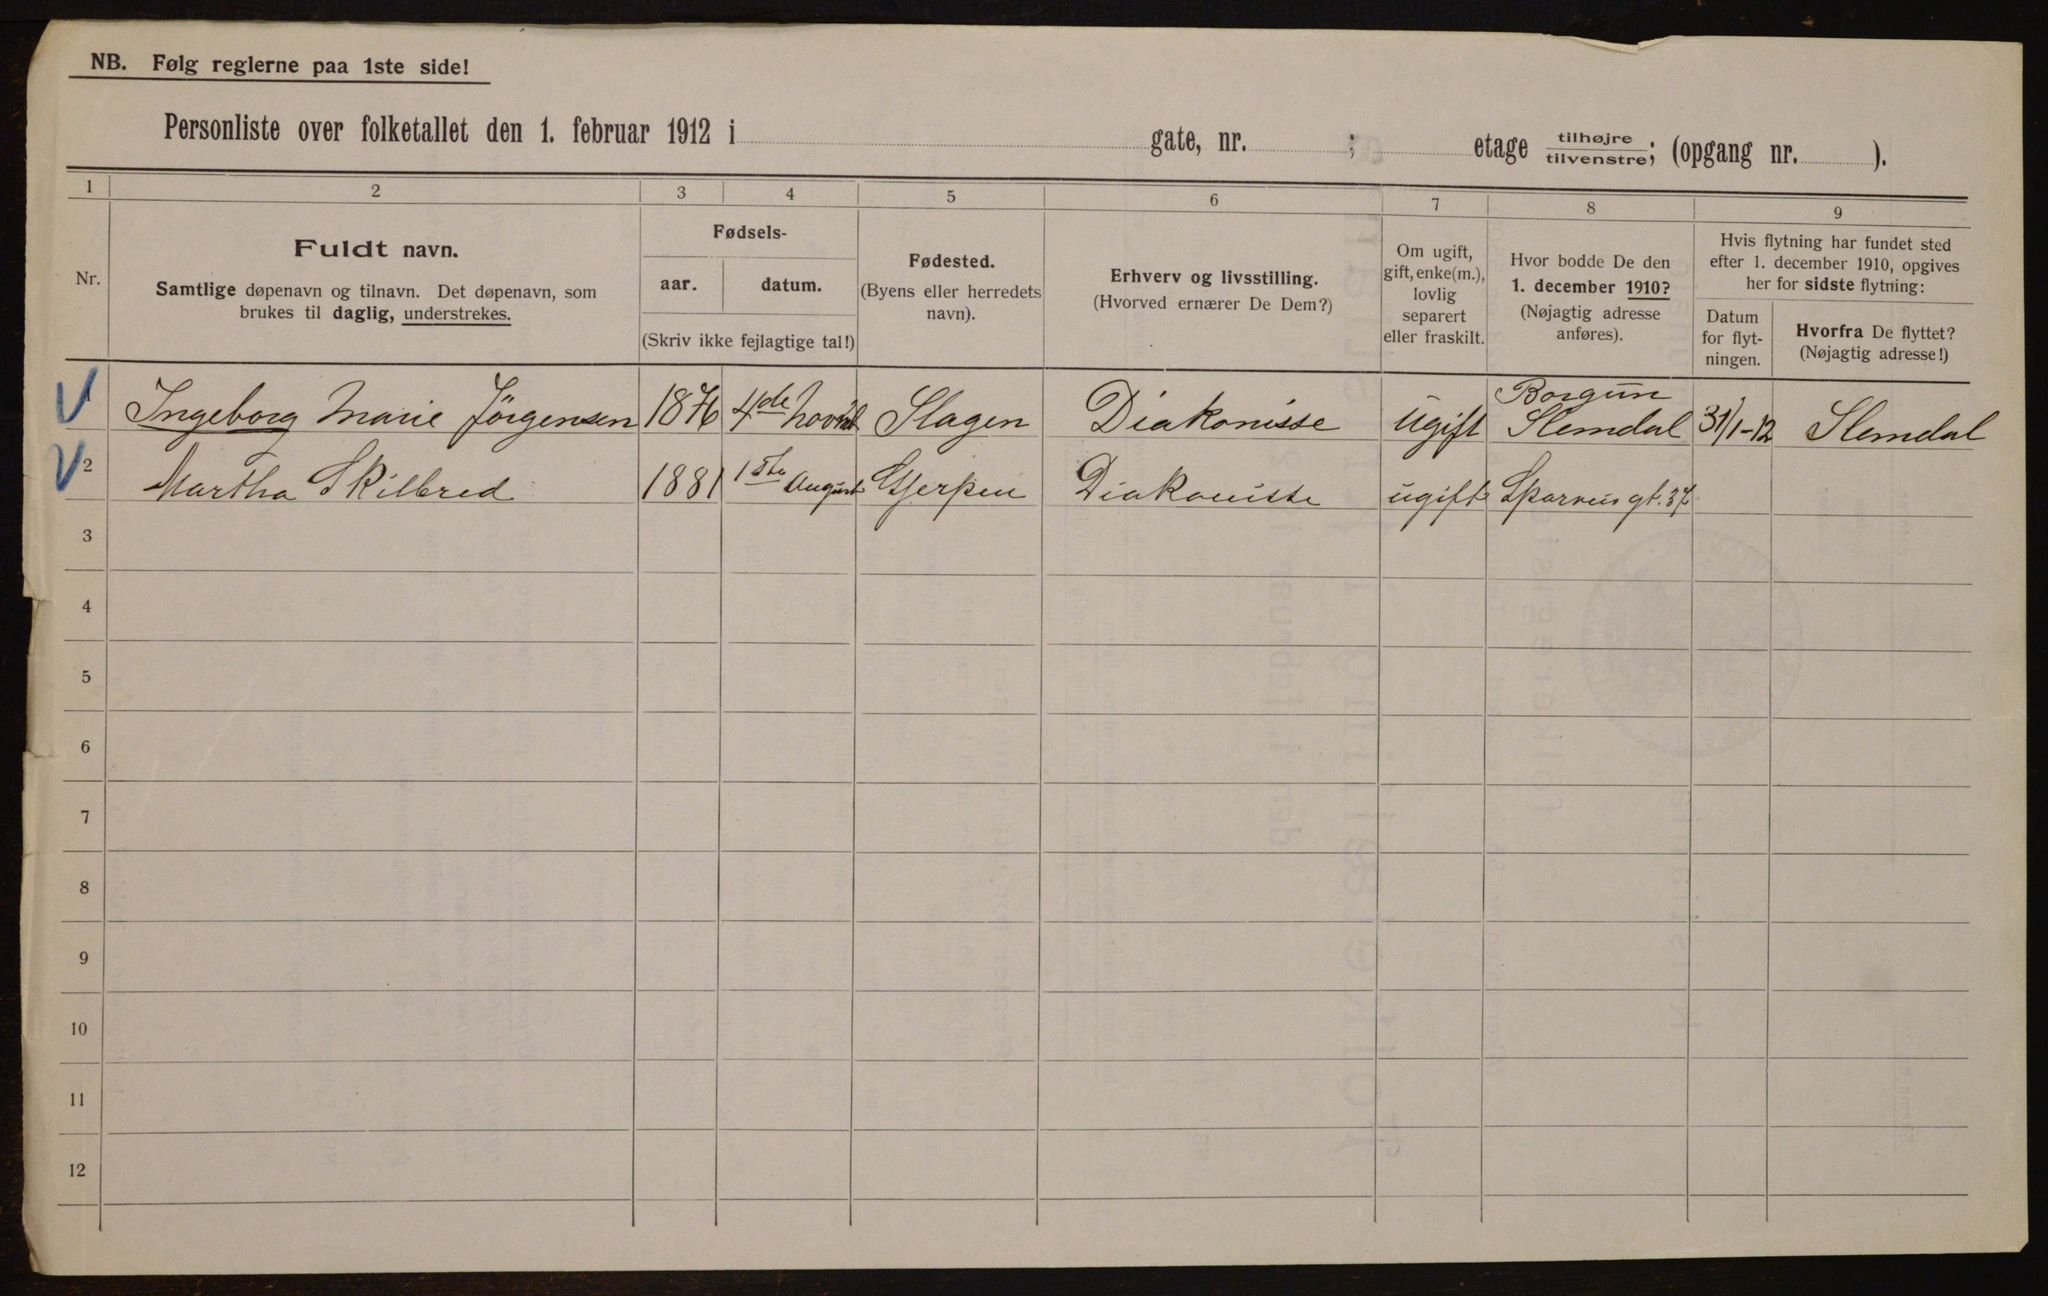 NB. Følg reglerne paa 1ste side!
Personliste over folketallet den 1. februar 1912 i gate, nr. ; etage tilhøjre/tilvenstre; (opgang nr. ).
1 2 3 4 5 6 7 8 9
Nr.
Fuldt navn.
Samtlige døpenavn og tilnavn. Det døpenavn, som
brukes til daglig, understrekes.
Fødsels-
aar. datum.
(Skriv ikke fejlagtige tal!)
Fødested.
(Byens eller herredets
navn).
Erhverv og livsstilling.
(Hvorved ernærer De Dem?)
Om ugift,
gift, enke(m.),
lovlig
separert
eller fraskilt.
Hvor bodde De den
1. december 1910?
(Nøjagtig adresse
anføres).
Hvis flytning har fundet sted
efter 1. december 1910, opgives
her for sidste flytning:
Datum
for flyt-
ningen.
Hvorfra De flyttet?
(Nøjagtig adresse!)
Ingeborg Marie Jörgensen 1876 4de Slagen Diakonisse ugift Slemdal 31/1-12 Slemdal
2 Martha Skilbred 1881 1ste August Gjerpen Diakonisse ugift
3
4
5
6
7
8
9
10
11
12